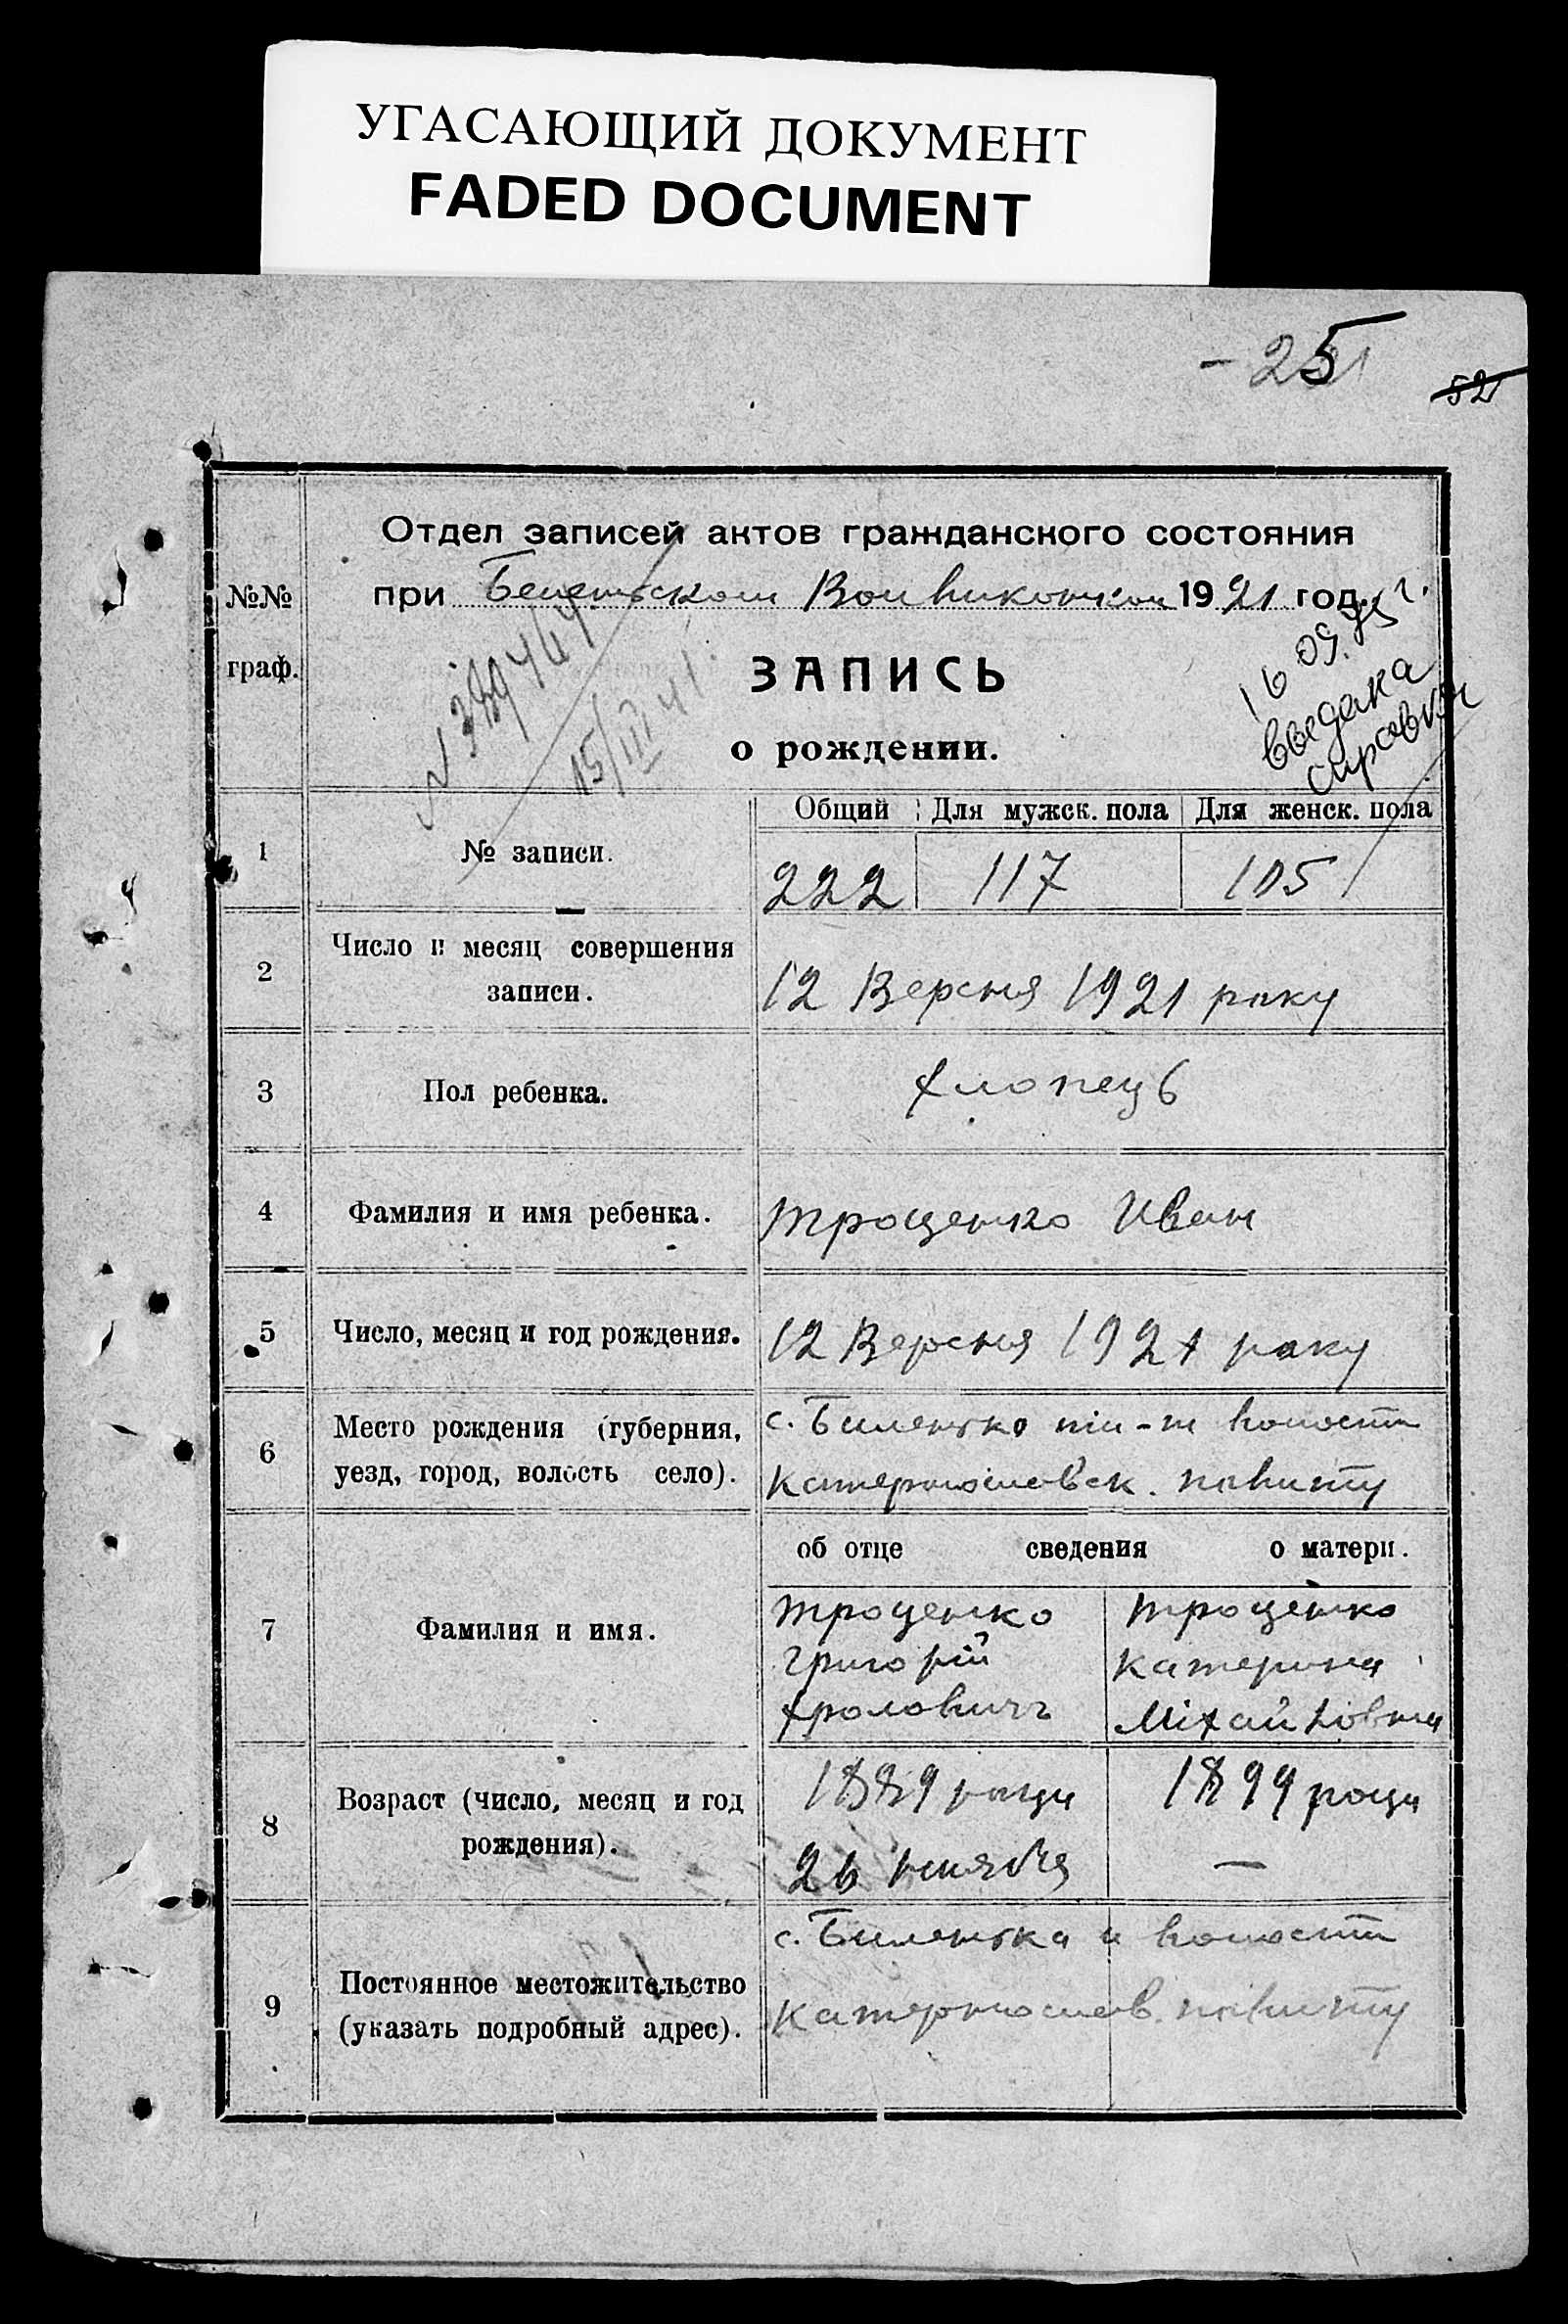 УГАСАЮЩИЙ ДОКУМЕНТ
FADED DOCUMENT
- 25
52
№№
граф.
Отдел записей актов гражданского состояния
при 1921 год.
ЗАПИСЬ
о рождении.
15/III 41.
16 09.
справка
Общий Для мужск. пола Для женск. пола
1 № записи. 222 117 105
2 Число и месяц совершения
записи.
12 Версня 1921 року
3 Пол ребенка. Хлопець
4 Фамилия и имя ребенка. Троценко Иван
5 Число, месяц и год рождения. 12 Версня 1921 року
6 Место рождения (губерния,
уезд, город, волость село).
с. Биленько волости
Катеринославск. повиту
об отце сведения о матери.
7 Фамилия и имя.
Троценко
Григорій
Хроловичъ
Троценко
Катерина
Міхайловна
8 Возраст (число, месяц и год
рождения).
1889 роци
26
1899 роци
—
9 Постоянное местожительство
(указать подробный адрес).
с. Биленька и волости
Катеринослав. повиту